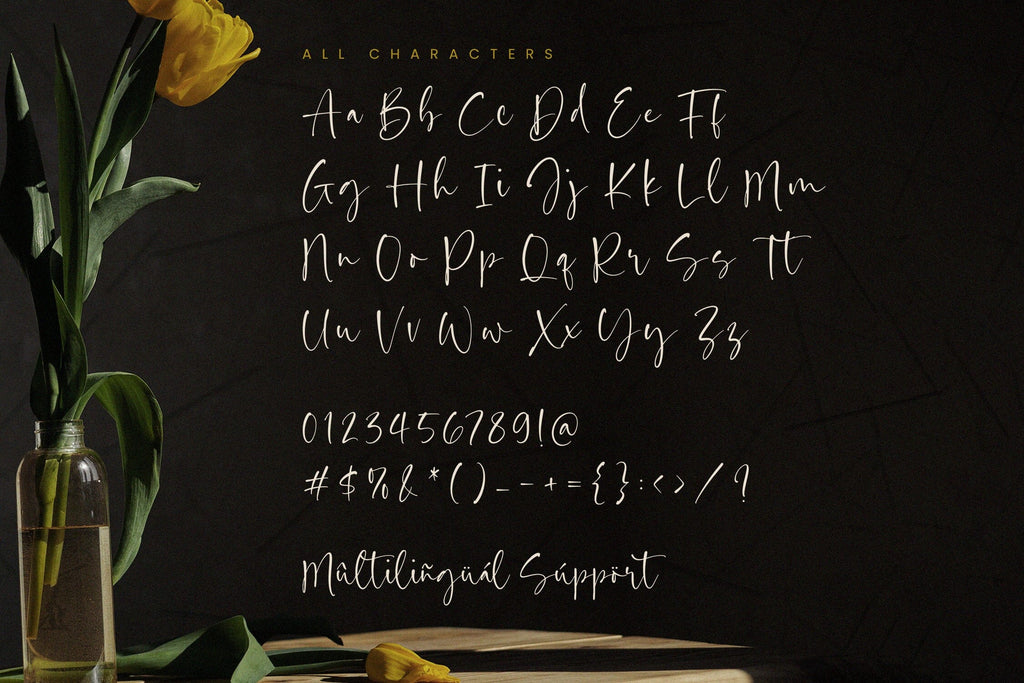 ALL CHARACTERS
Aa Bb Cc Dd Ee Ff
Gg Hh Ii Jj Kk Ll Mm
Nn Oo Pp Qq Rr Ss Tt
Uu Vv Ww Xx Yy Zz
0123456789!@
#$%&*()_-+={}:<>/?
Mûltiliñgüál Súppört